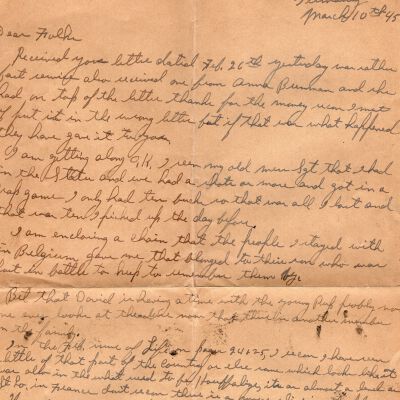 Germany
March 10th 45
Dear Folks
Received your letter dated Feb. 26th yesterday was rather
fast service also received one from Anna and she
had on top of the letter thanks for the money
I put it in the wrong letter but if that was what happened
they have gave it to you
I am getting along O.K., I seen my old mess Sgt that I had
in the States and we had a chat and got in a
crap game I only had ten bucks so that was all I lost and
that was ten I picked up the day before.
I am enclosing a chain that the people I stayed with
in Belguim gave me that belonged to their son who was
lost in battle to help to remember them by.
Bet that David is having a time with the young Pup probly
one ever looks at now that there is another member
in the family.
In the Feb issue of Life on page 24 & 25, I I have seen
little of that part of the country or else some which looks like it
was also in the what used to be Houffalize, its an almost a
St Lo, in France don't there is a